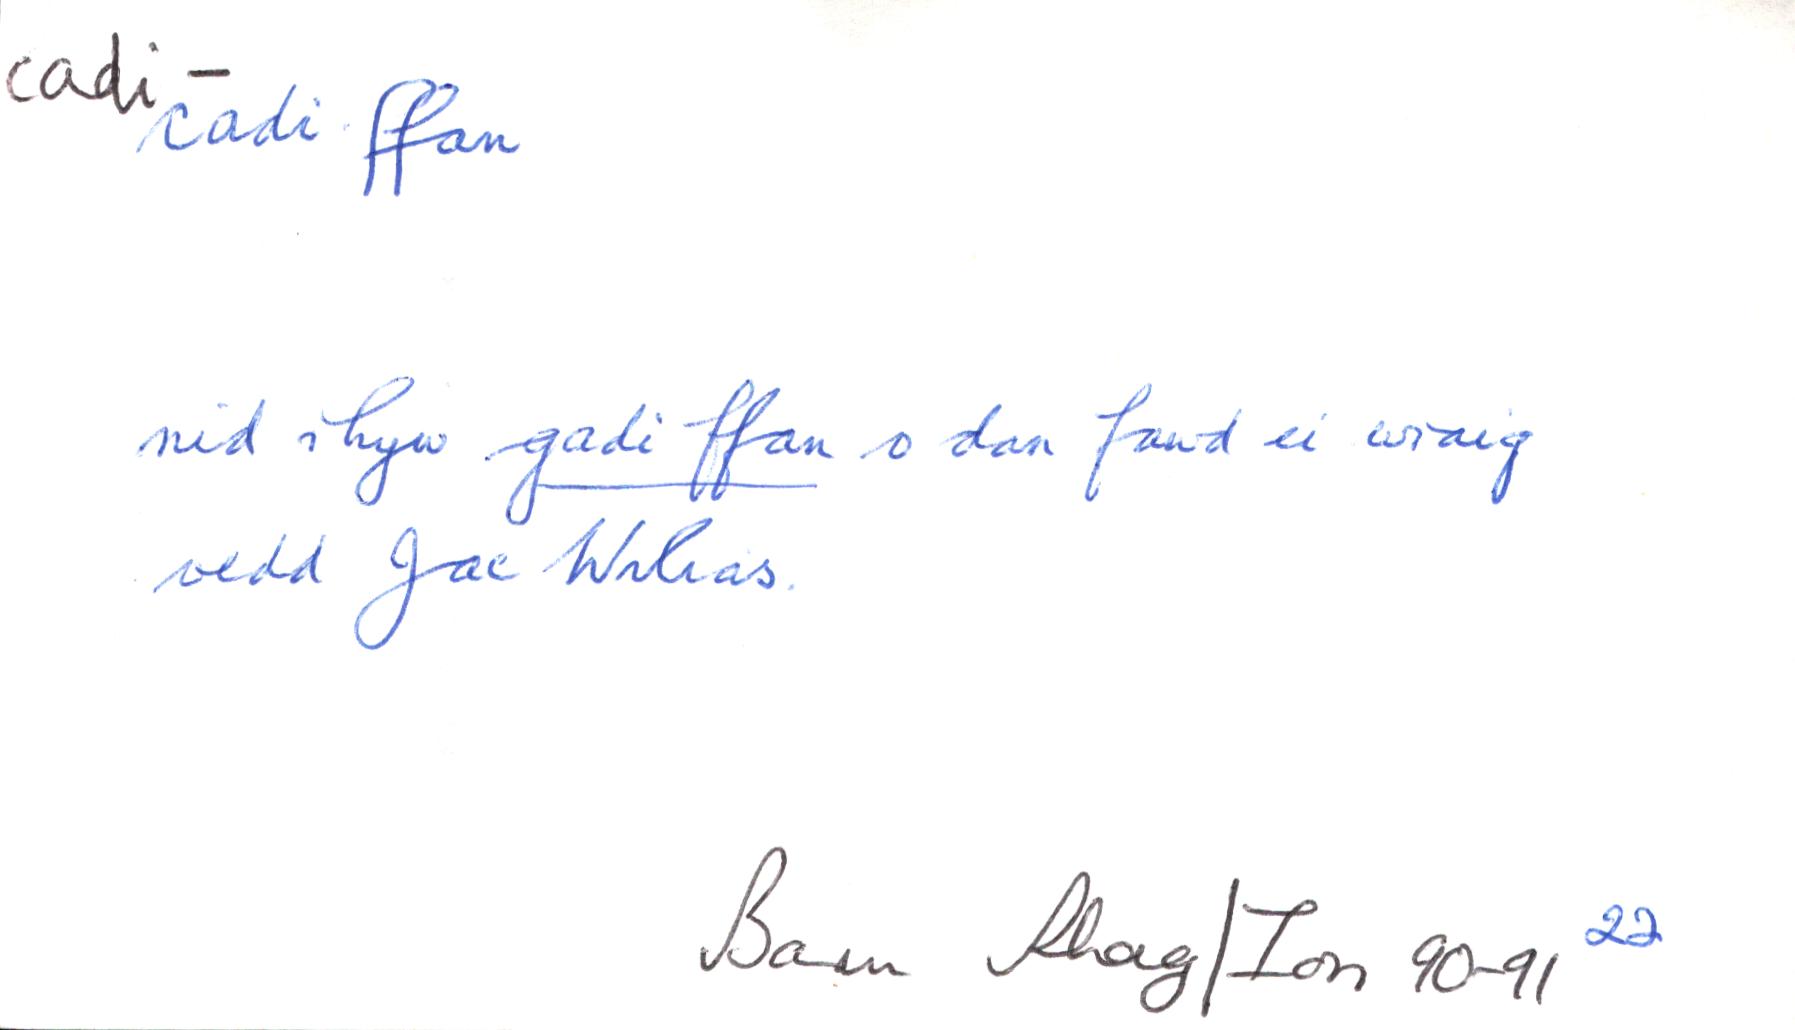 cadi-
cadi ffan
nid rhyw gadi ffan o dan fawd ei wraig
oedd Jac Wilias.
Barn Rhag/Ion 90-91 22